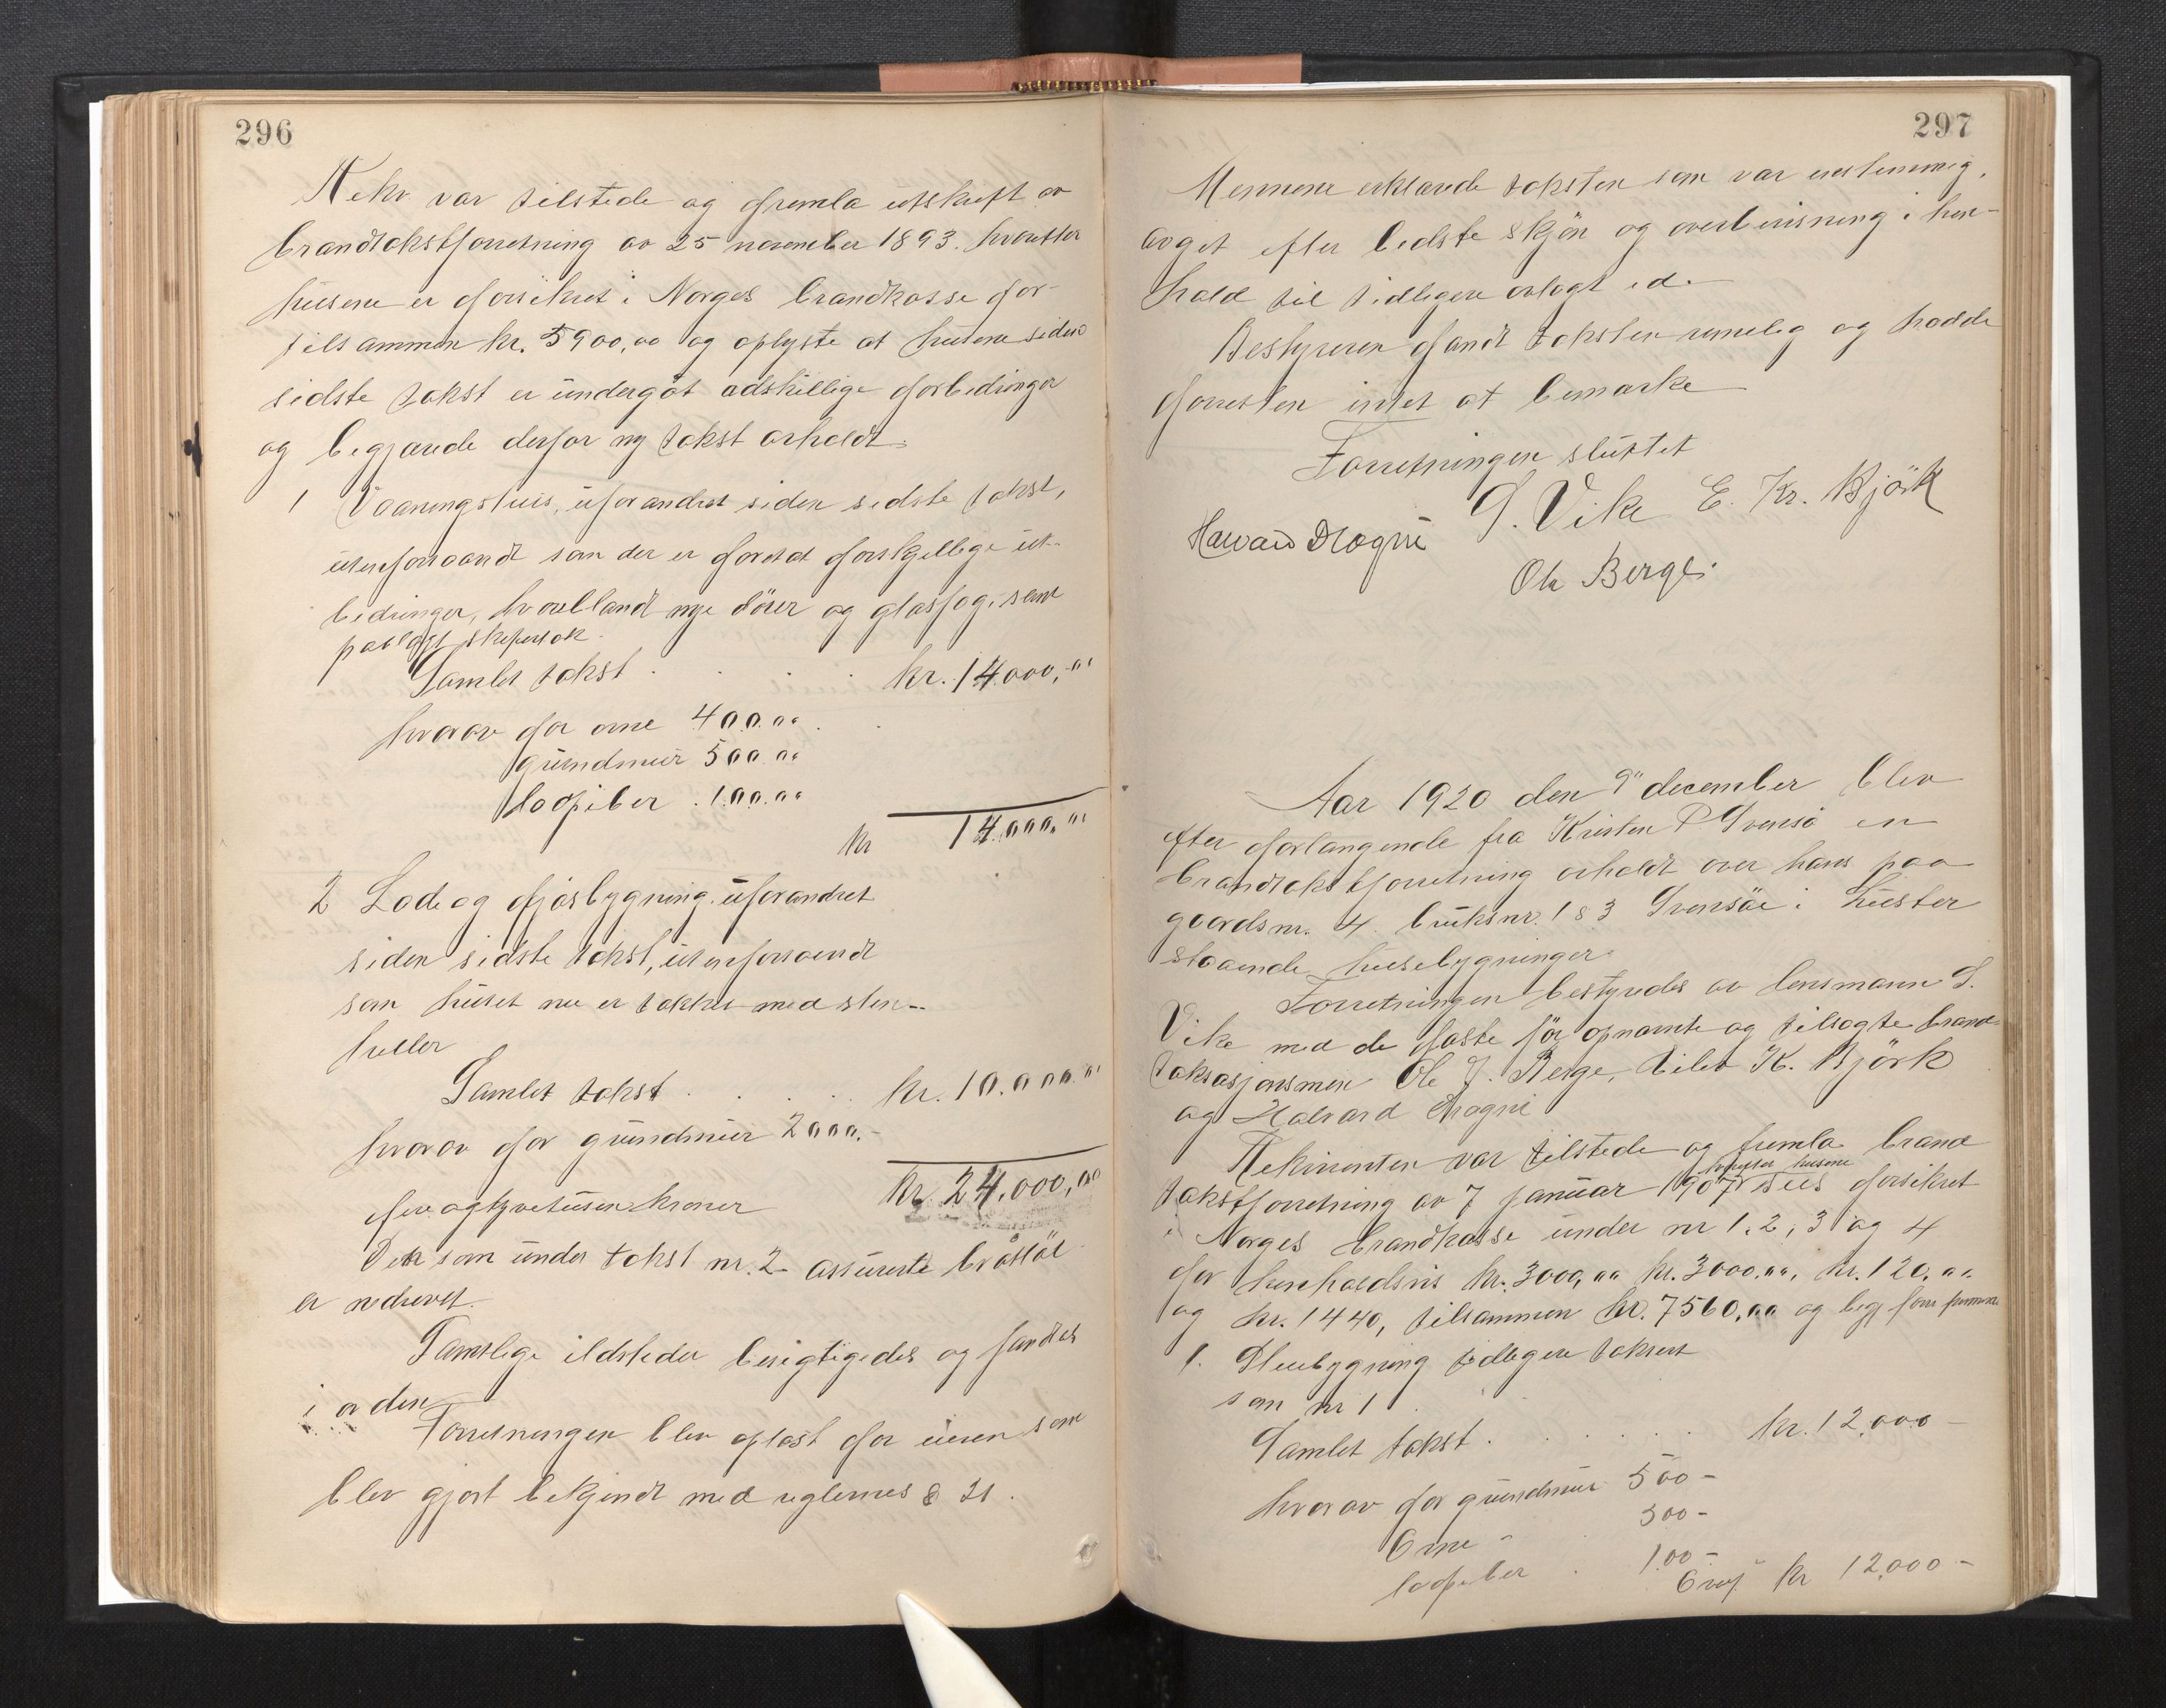 296
Rekv var tilstede og fremla utskrift av
brandtakstforretning av 25 november 1893. hvorefter
husene er forsikret i Norges brandkasse for
tilsammen kr. 5900,00 og oplyste at husene siden
sidste takst er undergåt adskillige forbedringer
og begjærede derfor ny takst avholdt.
1 Vaaningshus, uforandret siden sidste takst,
utenforsaavidt som der er foretat forskjellige ut-
bedringer, hvoriblandt nye dörer og glasfag, samt
paalagt skifertak.
Samlet takst . . . . kr. 14000,00
hvorav for ovne 400.00
grundmur 500.00
Lodpiber . 100.00
kr 14.000.00
2 Lode og fjösbygning. uforandret
siden sidste takst, utenforsaavidt
som huset nu er tækket med sten-
heller
Samlet takst . . . . kr. 10.000.00
hvorav for grundmur 2000.-
kr. 24.000,00
fireogtyvetusen kroner
Den som under takst nr. 2 assurerte
er nedrevet.
Samtlige ildsteder besigtigedes og fandtes
i orden
Forretningen blev oplæst for eieren som
blev gjort bekjendt med reglernes § 21.
297
Mennene erklærede taksten som var enstemmig,
avget efter bedste skjön og overbevisning i hen-
hold til tidligere avlagt ed.
Bestyreren fandt taksten rimelig og hadde
forresten intet at bemærke
Forretningen sluttet
S. Vike E. Kr. Björk
Ole Berge.
Aar 1920 den 9' december blev
efter forlangende fra Kristen P Svensö en
brandtakstforretning avholdt over hans paa
gaardsnr. 4. bruksnr. 1 & 3 Svensöe i Luster
staaende husebygninger
Forretningen bestyredes av lensmann S.
Vike med de faste för opnævnte og tilsagte brand-
taksasjonsmenn Ole J. Berge, Eilev K. Björk
og Halvard
Rekvirenten var tilstede og fremla brand
takstforretning av 7 januar 1907 hvorefter husene forsikret
i Norges brandkasse under nr 1, 2, 3 og 4
for henholdsvis kr. 3000,00 kr. 3000.00, kr. 120,00
og kr. 1440, tilsammen kr. 7560,00 og begj
1. Stuebygning tidligere taksert
som nr 1
Samlet takst . . . . kr. 12.000-
hvorav for grundmur 500-
Ovne - 300-
lodpiber . 100-
Overf. kr 12.000-